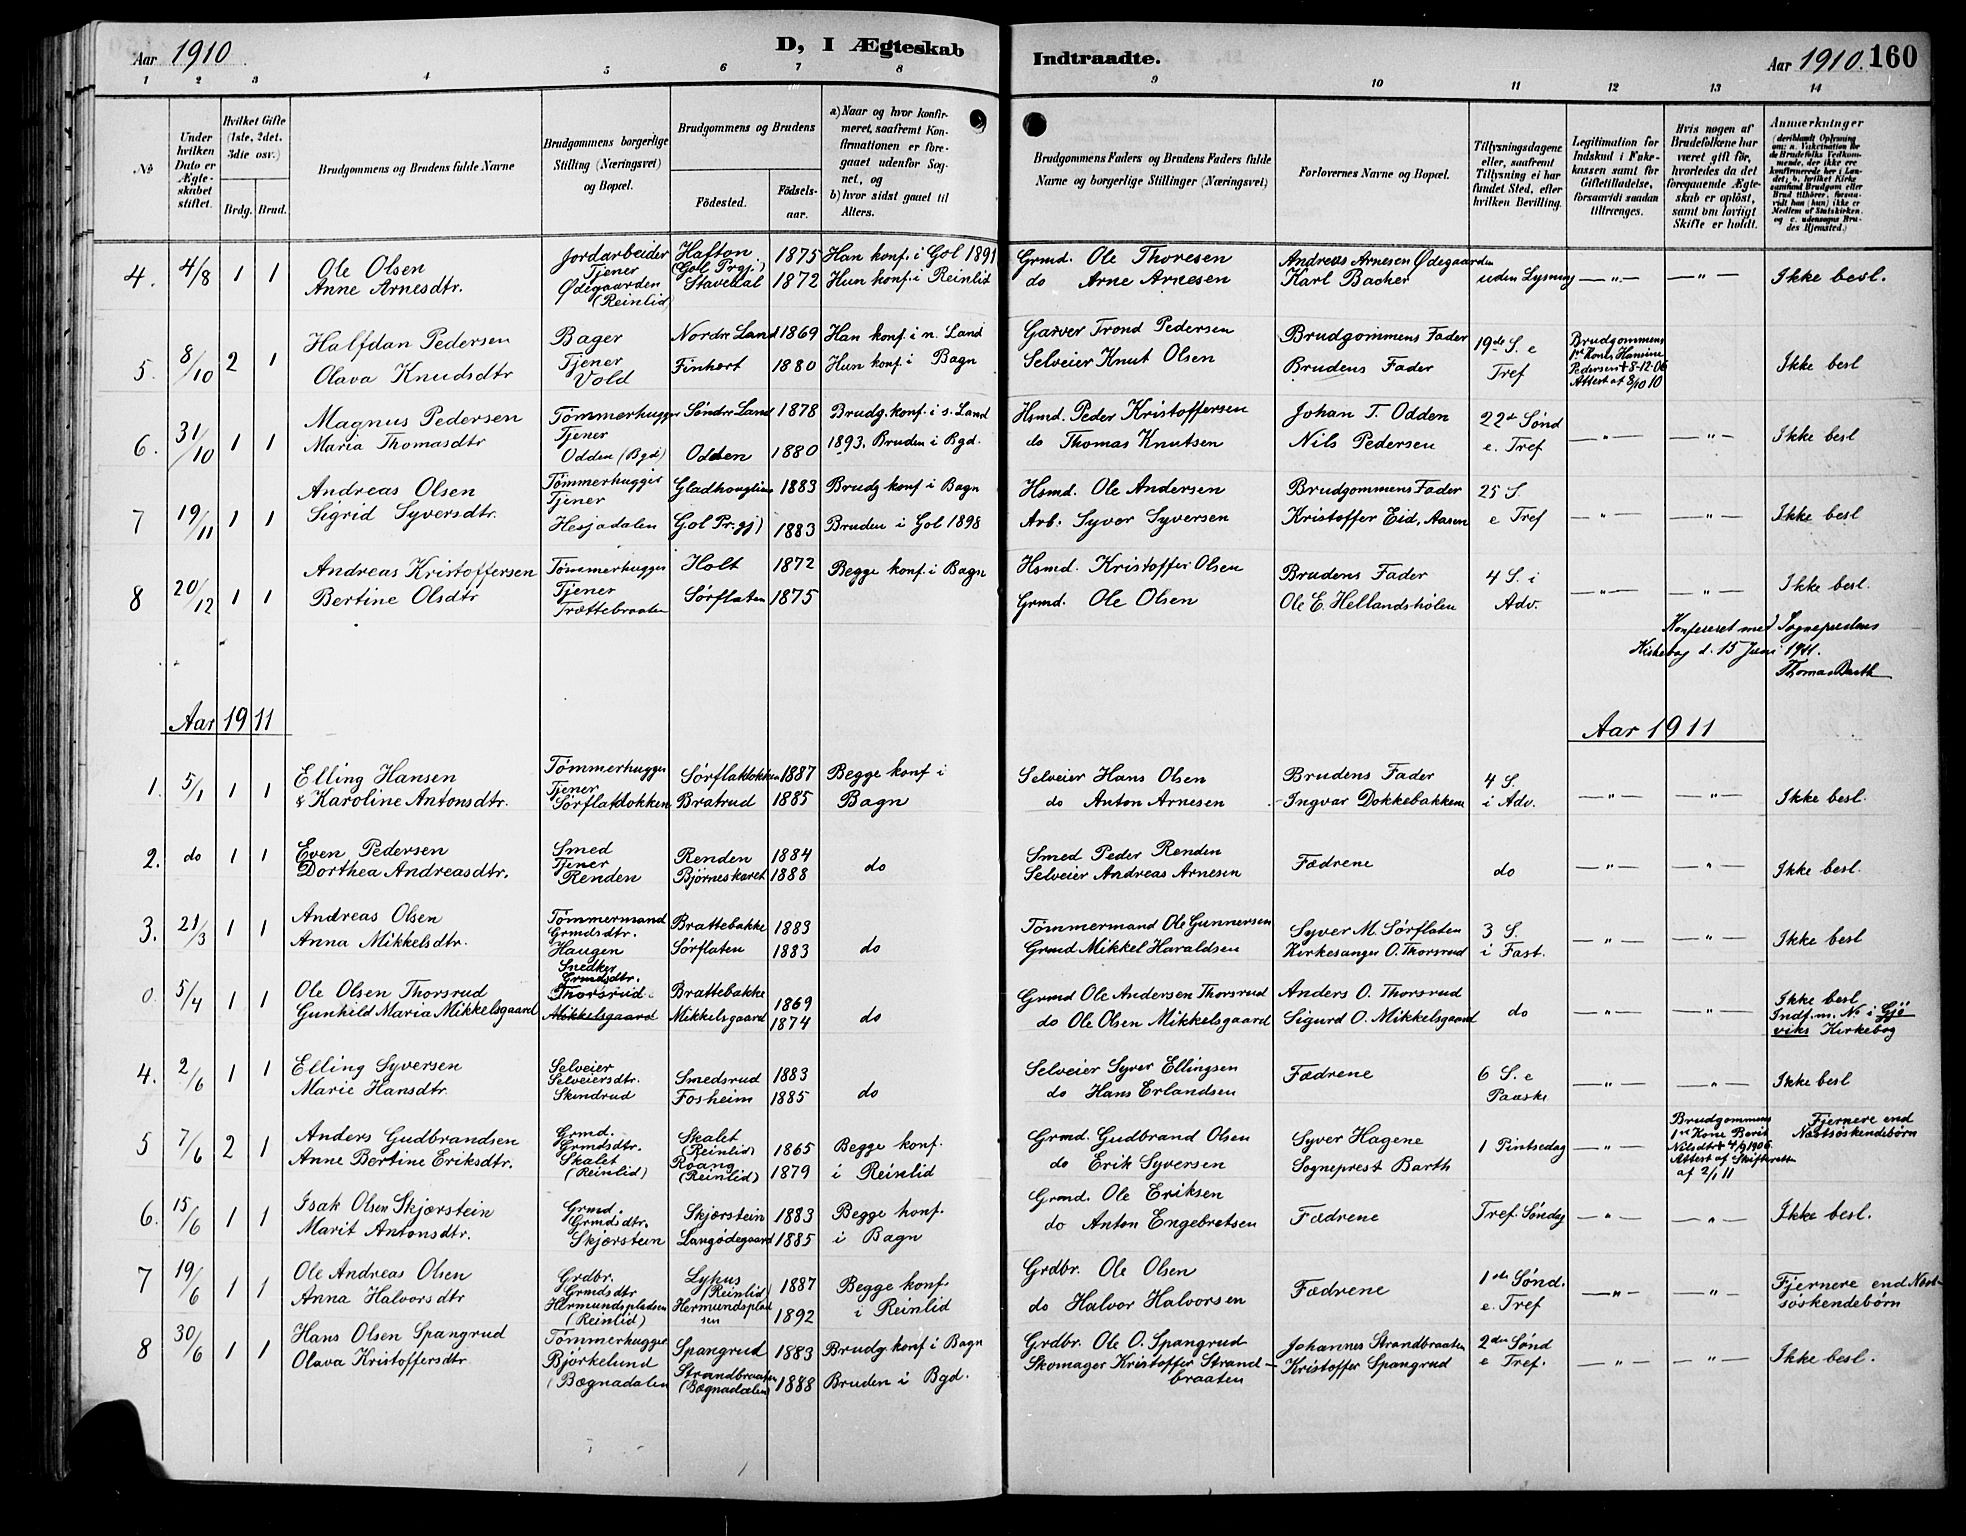 Aar 1910 D, I Ægteskab Indtraadte. Aar 1910. 160
1 2 3 4 5 6 7 8 9 10 11 12 13 14
No
Under hvilken Dato er Ægteskabet stiftet.
Hvilket Gifte (1ste, 2det, 3die osv.)
Brdg. Brud.
Brudgommens og Brudens fulde Navne
Brudgommens borgerlige Stilling (Næringsvei) og Bopæl.
Brudgommens og Brudens
Födested.
Födsels-aar.
a) Naar og hvor konfirmeret, saafremt Konfirmationen er foregaaet udenfor Sognet, og
b) hvor sidst gaaet til Alters.
Brudgommens Faders og Brudens Faders fulde Navne og borgerlige Stillinger (Næringsvei)
Forlovernes Navne og Bopæl.
Tillysningsdagene eller, saafremt Tillysning ei har fundet Sted, efter hvilken Bevilling.
Legitimation for Indskud i Enkekassen samt for Giftetilladelse, forsaavidt saadan tiltrænges.
Hvis nogen af Brudefolkene har været gift før, hvorledes da det foregaaende Ægteskab er opløst, samt om lovligt Skifte er holdt.
Anmærkninger (deriblandt Oplysning om: a. Vakcination for de Brudefolks Vedkommende, der ikke ere konfirmerede her i Landet; b. hvilket Kirkesamfund Brudgom eller Brud tilhører, forsaavidt han (hun) ikke er Medlem af Statskirken, og c. udensogns Brudes Hjemsted.)
4. 4/8 1 1 Ole Olsen Jordarbeider Hafton (Gol Prgj.) 1875 Han konf. i Gol 1891 Grmd. Ole Thoresen Andreas Arnesen Ødegaarden uden Lysning —"— —"— Ikke besl.
Anne Arnesdtr. Tjener Ødegaarden (Reinlid) Stavedal 1872 Hun konf. i Reinlid do Arne Arnesen Karl Backer
5. 8/10 2 1 Halfdan Pedersen Bager Nordre Land 1869 Han konf. i n. Land Garver Trond Pedersen Brudgommens Fader 19de S. e Tref Brudgommens 1ste Kone Hansine Pedersen + 8-12-06 Attest af 8/10 10 Ikke besl
Olava Knudsdtr Tjener Vold Finhert 1880 Hun konf. i Bagn Selveier Knut Olsen Brudens Fader
6. 31/10 1 1 Magnus Pedersen Tømmerhugger Søndre Land 1878 Brudg. konf. i s. Land 1893. Hsmd. Peder Kristoffersen Johan T. Odden 22de Sønd e. Tref —"— —"— Ikke besl
Maria Thomasdtr Tjener Odden (Bgd) Odden 1880 Bruden i Bgd. do Thomas Knutsen Nils Pedersen
7 19/11 1 1 Andreas Olsen Tømmerhugger Gladhouglien 1883 Brudg konf i Bagn Hsmd. Ole Andersen Brudgommens Fader 25 S. e Tref —"— —"— Ikke besl
Sigrid Syversdtr. Tjener Hesjadalen Gol Pr.gj) 1883 Bruden i Gol 1898 Arb. Syver Syversen Kristoffer Eid, Aasen
8 20/12 1 1 Andreas Kristoffersen Tømmerhugger Holt 1872 Begge konf. i Bagn Hsmd. Kristoffer Olsen Brudens Fader 4 S. i Adv. —"— —"— Ikke besl.
Bertine Olsdtr Tjener Trøttebraaten Sørflaten 1875 Grmd. Ole Olsen Ole E. Hellandshølen
Konfereret med Sogneprestens
Kirkebog d. 15 Juni 1911.
Thomas Barth
Aar 1911 Aar 1911
1. 5/1 1 1 Elling Hansen Tømmerhugger Sørflatdokken 1887 Begge konf i Bagn Selveier Hans Olsen Brudens Fader 4 S. i Adv. —"— —"— Ikke besl.
& Karoline Antonsdtr. Tjener Sørflatdokken Bratrud 1885 do Anton Arnesen Ingvar Dokkebakken
2. do 1 1 Even Pedersen Smed Renden 1884 do Smed Peder Renden Fædrene do —"— —"— Ikke besl.
Dorthea Andreasdtr. Tjener Renden Bjørneskaret 1888 Selveier Andreas Arnesen
3. 21/3 1 1 Andreas Olsen Tømmermand Brattebakke 1883 do Tømmermand Ole Gunnersen Syver M. Sørflaten 3 S. i Fast. —"— —"— Ikke besl
Anna Mikkelsdtr. Grmdsdtr. Haugen Sørflaten 1883 Grmd Mikkel Haraldsen Kirkesanger O. Thorsrud
0. 5/4 1 1 Ole Olsen Thorsrud Snedker Thorsrud Brattebakke 1869 do Grmd Ole Andersen Thorsrud Anders O. Thorsrud do —"— —"— Ikke besl Indf. m. No i Gjøviks Kirkebog
Gunhild Maria Mikkelsgaard Grmdsdtr. Mikkelsgaard Mikkelsgaard 1874 do Ole Olsen Mikkelsgaard Sigurd O. Mikkelsgaard
4. 2/6 1 1 Elling Syversen Selveier Smedsrud 1883 do Selveier Syver Ellingsen Fædrene 6 S. e Paaske —"— —"— Ikke besl
Marie Hansdtr. Selveiersdtr. Skindrud Fosheim 1885 do Hans Erlandsen
5 7/6 2 1 Anders Gudbrandsen Grmd. Skalet (Reinlid) 1865 Begge konf. i Reinlid Grmd. Gudbrand Olsen Syver Hagene 1 Pintsedag —"— Brudgommens 1ste Kone Berit Nilsdtr + 4/9 1906. Attest af Skifteretten af 2/1 11 Fjernere end Næstsøskendebørn
Anne Bertine Eriksdtr. Grmdsdtr. Skalet (Reinlid) Roang (Reinlid) 1879 do Erik Syversen Sogneprest Barth
6. 15/6 1 1 Isak Olsen Skjærstein Grmd. Skjærstein 1883 Begge konf. i Bagn Grmd. Ole Eriksen Fædrene Tref. Søndag —"— —"— Ikke besl.
Marit Antonsdtr. Grmdsdtr. Skjærstein Langødegaard 1885 do Anton Engebretsen
7 19/6 1 1 Ole Andreas Olsen Grdbr. Lyhus (Reinlid) 1887 Begge konf. i Reinlid Grdbr. Ole Olsen Fædrene 1ste Sønd. e. Tref —"— —"— Fjernere end Næstsøskendebørn
Anna Halvorsdtr Grmdsdtr Hermundspladsen (Reinlid) Hermundspladsen 1892 do Halvor Halvorsen
8 30/6 1 1 Hans Olsen Spangrud Tømmerhugger Spangrud 1883 Brudg. konf i Bagn Grdbr. Ole O. Spangrud Johannes Strandbraaten 2den Sønd e Tref. —"— —"— Ikke besl.
Olava Kristoffersdtr. Bjørkelund (Bægnadalen Strandbraaten (Bægnadalen) 1888 Bruden i Bgd. Skomager Kristoffer Strandbraaten Kristoffer Spangrud